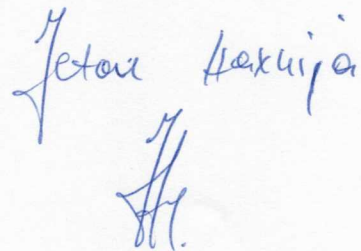 Jeton Haxhija
JH.